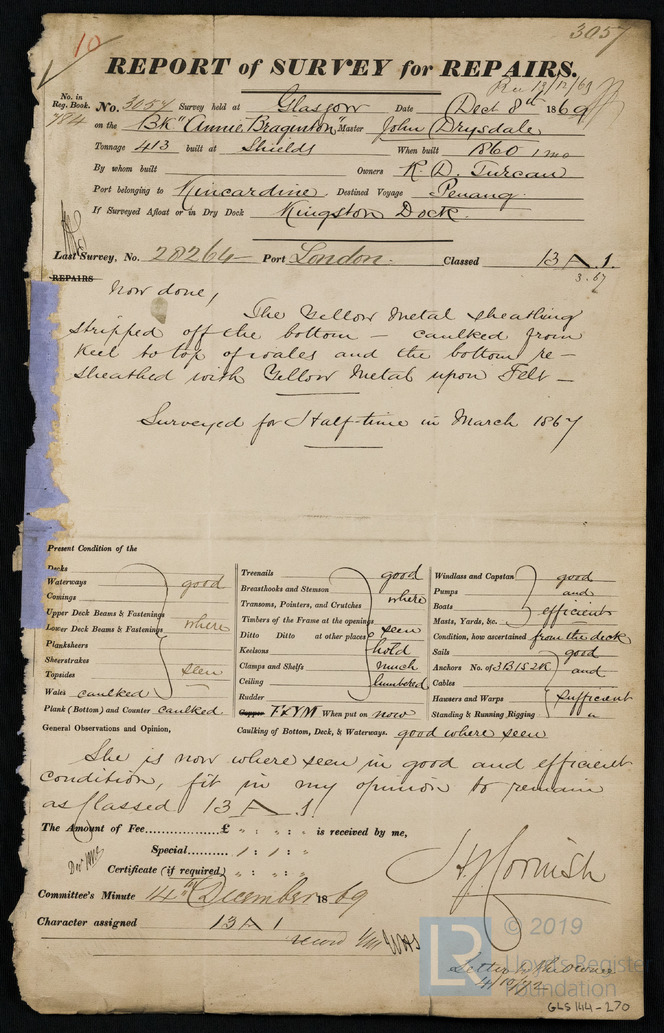 10
3057
REPORT of SURVEY for REPAIRS.
Rec 13/12/69
No. in Reg. Book. No. 3057 Survey held at Glasgow Date Dect 8th 1869
784 on the Bk "Annie Braginton" Master John Drysdale
Tonnage 413 built at Shields When built 1860 1 mo
By whom built Owners R. D. Turcan
Port belonging to Kincardine Destined Voyage Penang
If Surveyed Afloat or in Dry Dock Kingston Dock.
Last Survey, No. 28264 Port London. Classed 13 A.1.
3.67
REPAIRS
Now done,
The Yellow Metal sheathing
stripped off the bottom – caulked from
Keel to top of wales and the bottom re-
sheathed with Yellow Metal upon Felt –
Surveyed for Half-time in March 1867
Present Condition of the
Decks
Waterways good
Comings
Upper Deck Beams & Fastenings
Lower Deck Beams & Fastenings where
Planksheers
Sheerstrakes
Topsides seen
Wales caulked
Plank (Bottom) and Counter caulked
Treenails good
Breasthooks and Stemson
Transoms, Pointers, and Crutches where
Timbers of the Frame at the openings
Ditto Ditto at other places seen
Keelsons hold
Clamps and Shelfs much
Ceiling lumbered
Rudder
Copper FXYM When put on now
Windlass and Capstan good
Pumps and
Boats efficient
Masts, Yards, &c.
Condition, how ascertained from the deck
Sails good
Anchors No. of 3B1S2K and
Cables
Hawsers and Warps sufficient
Standing & Running Rigging "
General Observations and Opinion, Caulking of Bottom, Deck, & Waterways. good where seen
She is now where seen in good and efficient
condition, fit in my opinion to remain
as Classed 13 A.1.
The Amount of Fee............£ " : " : " is received by me,
Special......... 1 : 1 : "
Certificate (if required) " : " : "
H. J. Cornish
Committee's Minute 14th December 1869
Character assigned 13 A 1
record
© 2019
LR
Lloyd's Register
Foundation
Letter to the Owner
4/10/72
GLS 144-270